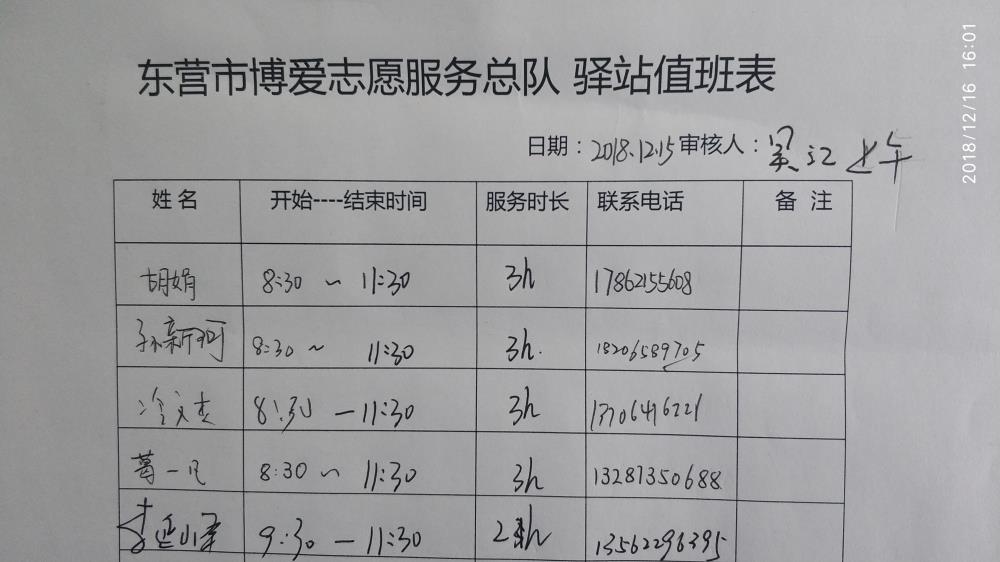 2018/12/16 16:01
东营市博爱志愿服务总队 驿站值班表
日期：2018.12.15 审核人：吴江 上午
姓名 开始----结束时间 服务时长 联系电话 备 注
胡娟 8:30 ~ 11:30 3h 17862155608
孙新珂 8:30 ~ 11:30 3h. 18206589705
冷文杰 8:30 — 11:30 3h 13706416221
葛一凡 8:30 ~ 11:30 3h 13287350688
李延军 9:30 — 11:30 2h 13562296395